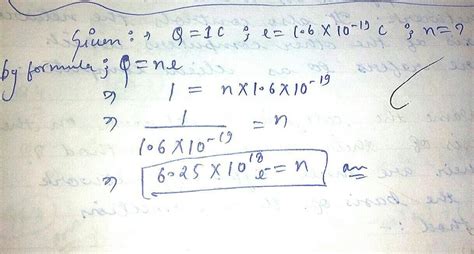 Given :→ Q = 1C ; e = 1.6 × 10⁻¹⁹ C ; n = ?
by formula ; Q = ne
⇒ 1 = n × 1.6 × 10⁻¹⁹
⇒ 1 / 1.6 × 10⁻¹⁹ = n
⇒ 6.25 × 10¹⁸ e⁻ = n an